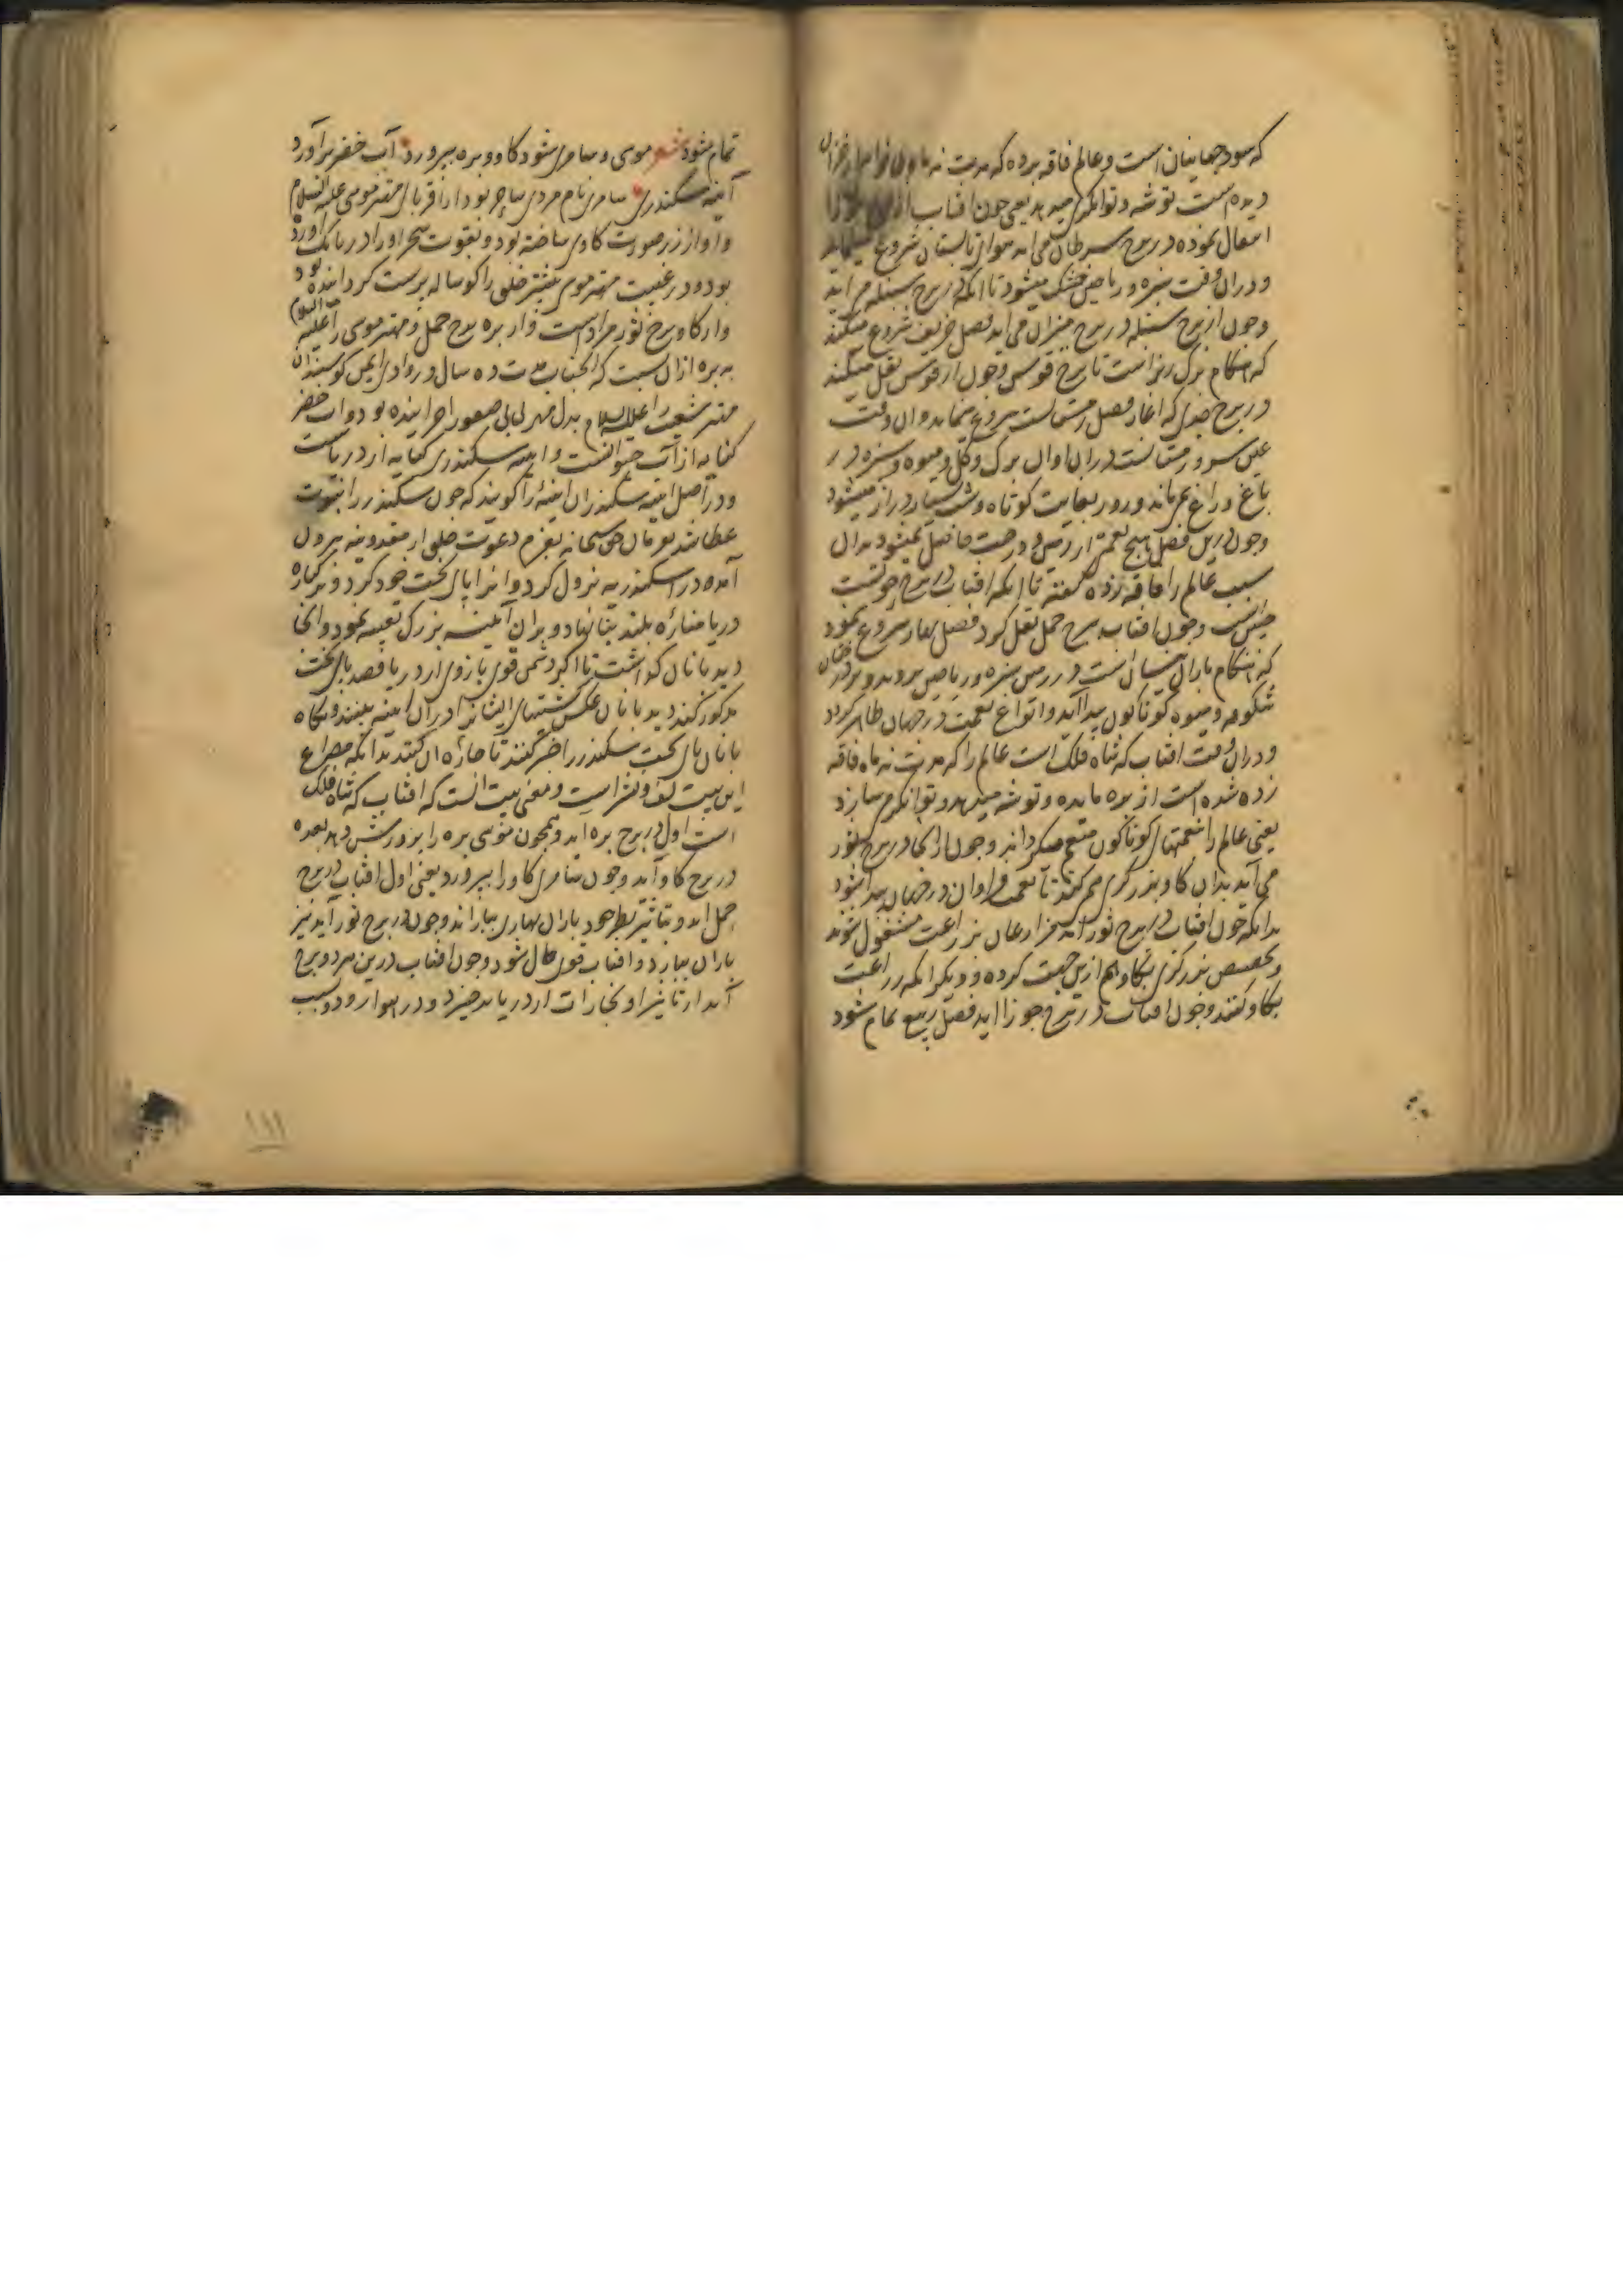 که سود جهانیان است و عالم فاقه برده که مدت نه ماه
دیده است توشه و توانگری میدهد یعنی چون افتاب از
انتقال نموده در برج سرطان می آید هوای تابستان شروع مینماید
و دران وقت سبزه و ریاحین خشک میشود تا انکه در برج سنبله می آید
و چون از برج سنبله در برج میزان می آید فصل خریف شروع میکند
که هنگام برک ریز است تا برج قوس و چون از قوس نقل میکند
در برج جدی که اغاز فصل زمستانست شروع نماید و ان وقت
عین سرد زمستانست دران اوان برک و کل و میوه و سبزه در
باغ و راغ نمی ماند و روز بغایت کوتاه و شب بسیار دراز میشود
و چون درین فصل هیچ نعمتی از زمین و درخت حاصل نمیشود بدان
سبب عالم را فاقه زده گفته تا انکه افتاب در برج حوتست
چنین است و چون افتاب به برج حمل نقل کرد فصل بهار شروع نمود
که هنگام باران نیسان است در زمین سبزه و ریاحین بروید و بر درختان
شکوفه و میوه کوناکون پیدا آید و انواع نعمت در جهان ظاهر کردد
و دران وقت افتاب که شاه فلک است عالم را که مدت نه ماه فاقه
زده شده است از بره مایده و توشه میدهد و توانگر میسازد
یعنی عالم را بنعمتهای کوناکون متنعم میکرداند و چون از انجا در برج ثور
می آید بدان کاو بزرگری هم کند تا نعمت فراوان در جهان پیدا شود
بدانکه چون افتاب در برج ثور آید مزارعان بزراعت مشغول شوند
و تخصیص بزرگری بکاو هم ازین جهت کرده و دیگر انکه زراعت
بکاو کنند و چون افتاب در برج جوزا اید فصل ربیع تمام شود
تمام شود شعر موسی و سامری شود کاو و بره بپرورد آب خضر برآورد
آینه سکندری سامری نام مردی ساحر بود از اقربای مهتر موسی علیه السلام
و او از زر صورت کاوی ساخته بود و بقوت سحر او را در بانک آورده
بود و در غیبت مهتر موسی بیشتر خلق را کوساله پرست کردانیده بود
و از کاو برج ثور مراد است و از بره برج حمل و مهتر موسی را علیه السلام
به بره ازان نسبت که انجناب مدت ده سال در وادی ایمن کوسپندان
مهتر شعیب را علیه السلام بدل مهر بی بی صفورا چرانیده بود و اب خضر
کنایه از آب حیوانست و اینه سکندری کنایه از دریاست
و در اصل اینه سکندر ان اینه را کویند که چون سکندر را نبوت
عطا شد بفرمان حق سبحانه بعزم دعوت خلق از مقدونیه بیرون
آمده در اسکندریه نزول کرد و انرا پای تخت خود کرد و بر کناره
دریا مناره بلند بنا نهاد و بران آیینه بزرک تعبیه نمود و انجا
دیده بانان کذاشت تا اکر دشمن قوی بازوی از دریا قصد پای تخت
مذکور کند دیده بانان عکس کشتیهای ایشان را دران اینه ببینند و نکاه
بانان پای تخت سکندر را خبر کنند تا چاره ان کنند بدانکه مصراع
این بیت لف و نشر است و معنی بیت انست که افتاب که شاه فلک
است اول در برج بره اید و همچون موسی بره را پرورش دهد بعده
در برج کاو آید و چون سامری کاو را بپرورد یعنی اول افتاب در برج
حمل اید و بتاثیر نظر خود باران بهاری بباراند و چون در برج ثور آید نیز
باران ببارد و افتاب قوی حال شود و چون افتاب درین هر دو برج
آید از تاثیر او بخارات از دریا برخیزد و در هوا رود و سبب
۱۱۱